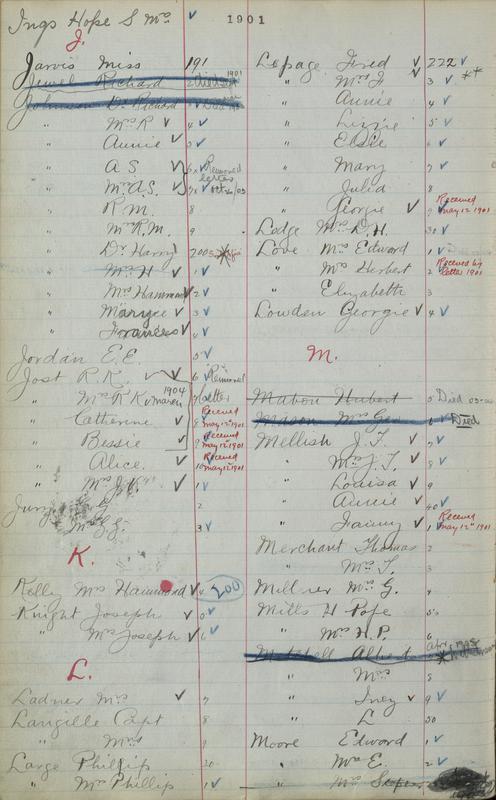 1901
Ings Hope S Mrs
J.
Jarvis Miss 191
Jewel Richard 2 Died 1901
Johnson Dr Richard
" Mrs R 4
" Annie 5
" A S. 6 Removed
" Mrs A.S. 7 letter Oct 2/03
" R. M. 8
" Mrs R.M. 9
" Dr Harry 200
" Mrs H 1
" Mrs Hammond 2
" 3
" Frances 4
Jordan E. E. 5
Jost R. K. 6 Removed
" Mrs R K 1904 7 letter
" Catherine 8 Received May 12th 1901
" Bessie 9 Received May 12th 1901
" Alice. 10 Received May 12th 1901
" Mrs 1
2
" 3
K.
Kelly Mrs Hammond 4 200
Knight Joseph 5
" Mrs Joseph 6
L.
Ladner Mrs 7
Langille Capt 8
" Mrs 9
Large Phillip 20
" Mrs Phillip 1
Lepage Fred 222
" Mrs F 3 **
" Annie 4
" Lizzie 5
" Elsie 6
" Mary 7
" Julia 8
" Georgie 9 Received May 12th 1901
Lodge Mrs D. H. 30
Love Mrs Edward 1
" Mrs Herbert 2 Received by letter 1901
" Elizabeth 3
Lowden Georgie 4
M.
Mabon Hubert 5 Died
Mason Mrs Geo 6 Died
Mellish J. T. 7
" Mrs J. T. 8
" Louisa 9
" Annie 40
" Fanny 1 Received May 12th 1901
Merchant Thomas 2
" Mrs T. 3
Millner Mrs G. 4
Mills H Pope 5
" Mrs H.P. 6
Mitchell Albert
" Mrs 8
" Iney 9
" L 50
Moore Edward 1
" Mrs E. 2
" Mrs